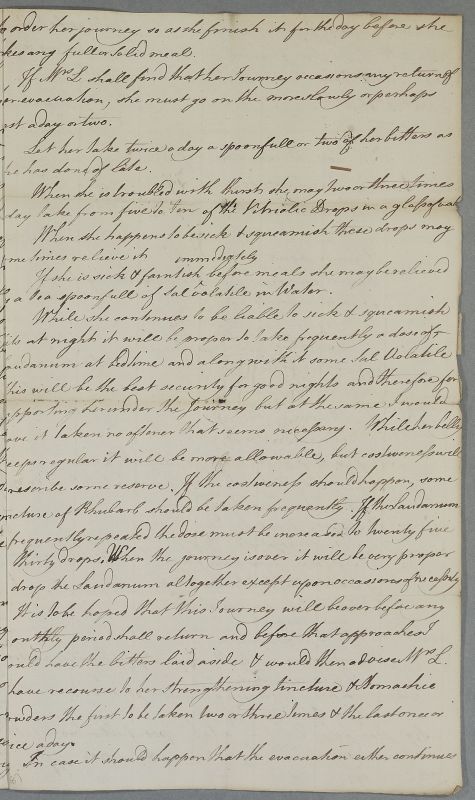 to order her journey so as she finish it for the day before she
takes any full or solid meal.
If Mrs L. shall find that her Journey occasions any return of
her evacuation, she must go on the more slowly or perhaps
rest a day or two.
Let her take twice a day a spoonfull or two of her bitters as
she has done of late.
When she is troubled with thirst she may two or three times
a day take from five to ten of the Vitriolic Drops in a glass of water
When she happens to be sick & squeamish these drops may
sometimes relieve it immediately
If she is sick & faintish before meals she may be relieved
by a tea spoonfull of Sal Volatile in Water.
While she continues to be liable to sick & squeamish
fits at night it will be proper to take frequently a dose of
Laudanum at bedtime and along with it some Sal Volatile
this will be the best security for good nights and therefore for
supporting her under the Journey but at the same I would
have it taken no oftener that seems necessary. While her belly
keeps regular it will be more allowable, but costiveness will
prescribe some reserve. If the costiveness should happen, some
tincture of Rhubarb should be taken frequently. If the Laudanum
be frequently repeated the dose must be increased to twenty five
thirty drops, When the journey is over it will be very proper
drop the Laudanum altogether except upon occasions of necessity
It is to be hoped that this Journey will be over before any
monthly period shall return and before that approaches I
would have the bitters laid aside & would then advise Mrs L.
have recourse to her strengthening tincture & Stomachic
powders the first to be taken two or three times & the last once or
twice a day.
In case it should happen that the evacuation either continues